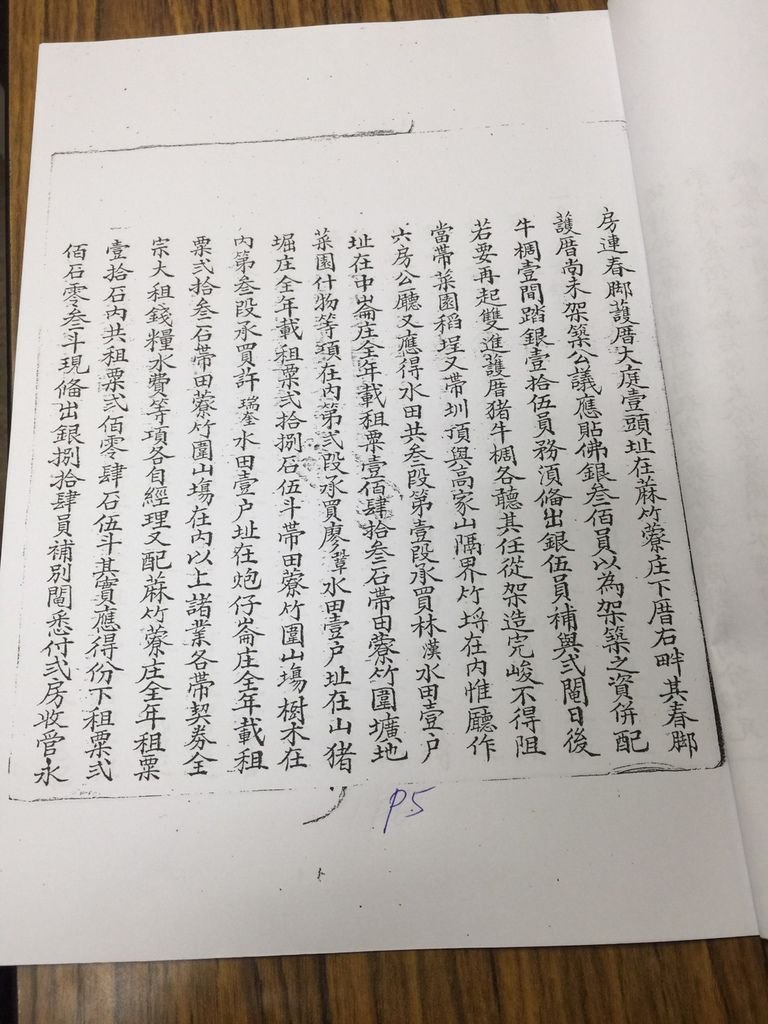 房連春脚護厝大庭壹頭址在蔴竹藔庄下厝右畔其春脚
護厝尚未架築公議應貼佛銀叁佰員以為架築之資併配
牛椆壹間踏銀壹拾伍員務湏偹出銀伍員補與弍䦰日後
若要再起雙進護厝猪牛椆各聽其任從架造完峻不得阻
當帶菜園稻埕又帶圳頂與高家山隔界竹埒在內惟廳作
六房公廳又應得水田共叁段第壹段承買林漢水田壹户
址在中崙庄全年載租粟壹佰肆拾叁石帶田藔竹圍壙地
菜園什物等項在內第弍段承買廖葦水田壹户址在山猪
堀庄全年載租粟弍拾捌石伍斗帶田藔竹圍山塲樹木在
內第叁段承買許瑞奎水田壹户址在炮仔崙庄全年載租
粟弍拾叁石帶田藔竹圍山塲在內以上諸業各帶契券全
宗大租錢糧水費等項各自經理又配蔴竹藔庄全年租粟
壹拾石內共租粟弍佰零肆石伍斗其實應得份下租粟弍
佰石零叁斗現偹出銀捌拾肆員補別䦰悉付弍房收管永
P5